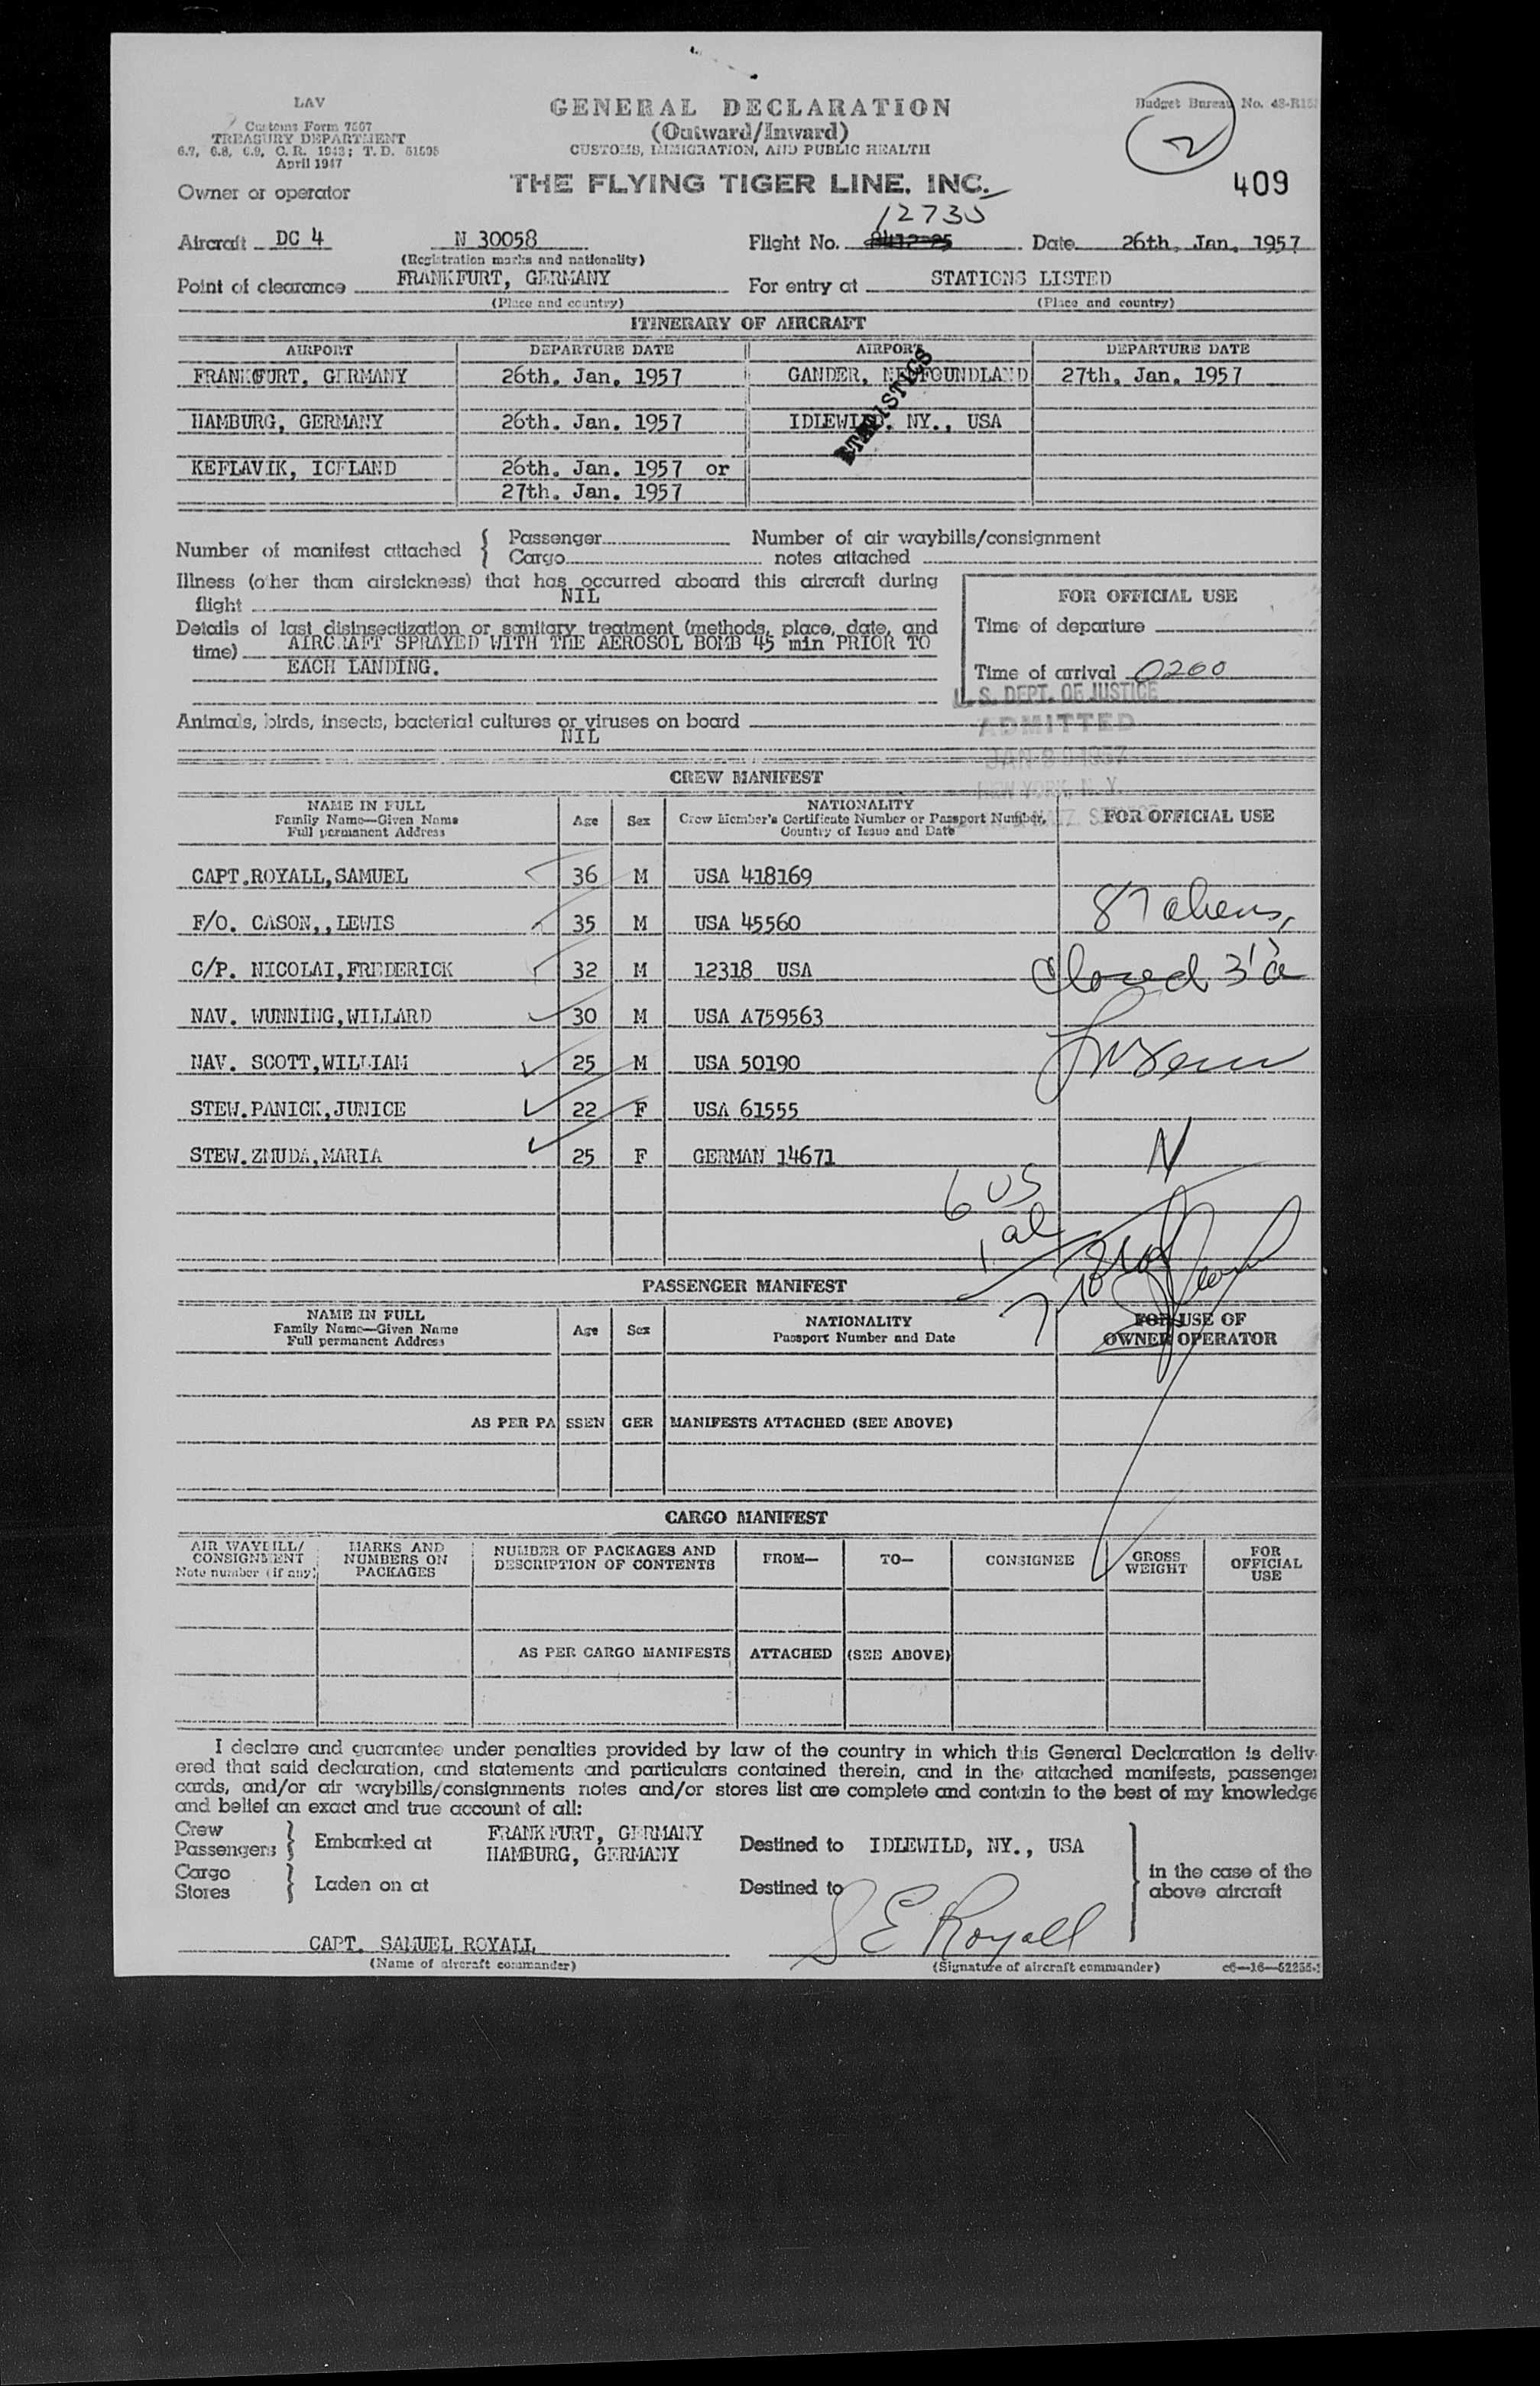 LAV
Customs Form 7507
TREASURY DEPARTMENT
6.7, 6.8, 6.9, C.R. 1943; T.D. 51595
April 1947
GENERAL DECLARATION
(Outward/Inward)
CUSTOMS, IMMIGRATION, AND PUBLIC HEALTH
Budget Bureau No. 48-R15
2
409
Owner or operator THE FLYING TIGER LINE, INC.
Aircraft DC 4 N 30058 Flight No. Date 26th. Jan. 1957
(Registration marks and nationality)
Point of clearance FRANKFURT, GERMANY For entry at STATIONS LISTED
(Place and country) (Place and country)
ITINERARY OF AIRCRAFT
AIRPORT DEPARTURE DATE AIRPORT DEPARTURE DATE
FRANKFURT, GERMANY 26th. Jan. 1957 GANDER, NEWFOUNDLAND 27th. Jan. 1957
HAMBURG, GERMANY 26th. Jan. 1957 IDLEWILD, NY., USA
STATISTICS
KEFLAVIK, ICELAND 26th. Jan. 1957 or
27th. Jan. 1957
Number of manifest attached { Passenger Number of air waybills/consignment
Cargo notes attached
Illness (other than airsickness) that has occurred aboard this aircraft during
flight NIL
FOR OFFICIAL USE
Details of last disinsectization or sanitary treatment (methods, place, date, and
time) AIRCRAFT SPRAYED WITH THE AEROSOL BOMB 45 min PRIOR TO
EACH LANDING.
Time of departure
Time of arrival 0200
U. S. DEPT. OF JUSTICE
ADMITTED
NEW YORK, N. Y.
Animals, birds, insects, bacterial cultures or viruses on board
NIL
CREW MANIFEST
NAME IN FULL
Family Name—Given Name
Full permanent Address
Age
Sex
NATIONALITY
Crew Member's Certificate Number or Passport Number,
Country of Issue and Date
FOR OFFICIAL USE
CAPT.ROYALL,SAMUEL 36 M USA 418169
F/O. CASON,,LEWIS 35 M USA 45560
C/P. NICOLAI,FREDERICK 32 M 12318 USA
NAV. WUNNING,WILLARD 30 M USA A759563
NAV. SCOTT,WILLIAM 25 M USA 50190
STEW.PANICK,JUNICE 22 F USA 61555
STEW.ZMUDA,MARIA 25 F GERMAN 14671
87 aliens,
N
6 US
1 al
7
PASSENGER MANIFEST
NAME IN FULL
Family Name—Given Name
Full permanent Address
Age
Sex
NATIONALITY
Passport Number and Date
FOR USE OF
OWNER OPERATOR
AS PER PASSENGER MANIFESTS ATTACHED (SEE ABOVE)
CARGO MANIFEST
AIR WAYBILL/
CONSIGNMENT
Note number (if any)
MARKS AND
NUMBERS ON
PACKAGES
NUMBER OF PACKAGES AND
DESCRIPTION OF CONTENTS
FROM—
TO—
CONSIGNEE
GROSS
WEIGHT
FOR
OFFICIAL
USE
AS PER CARGO MANIFESTS ATTACHED (SEE ABOVE)
I declare and guarantee under penalties provided by law of the country in which this General Declaration is deliv-
ered that said declaration, and statements and particulars contained therein, and in the attached manifests, passenger
cards, and/or air waybills/consignments notes and/or stores list are complete and contain to the best of my knowledge
and belief an exact and true account of all:
Crew
Passengers } Embarked at FRANKFURT, GERMANY
HAMBURG, GERMANY
Destined to IDLEWILD, NY., USA
Cargo
Stores } Laden on at
Destined to
in the case of the
above aircraft
CAPT. SAMUEL ROYALL
S E Royall
(Name of aircraft commander) (Signature of aircraft commander)